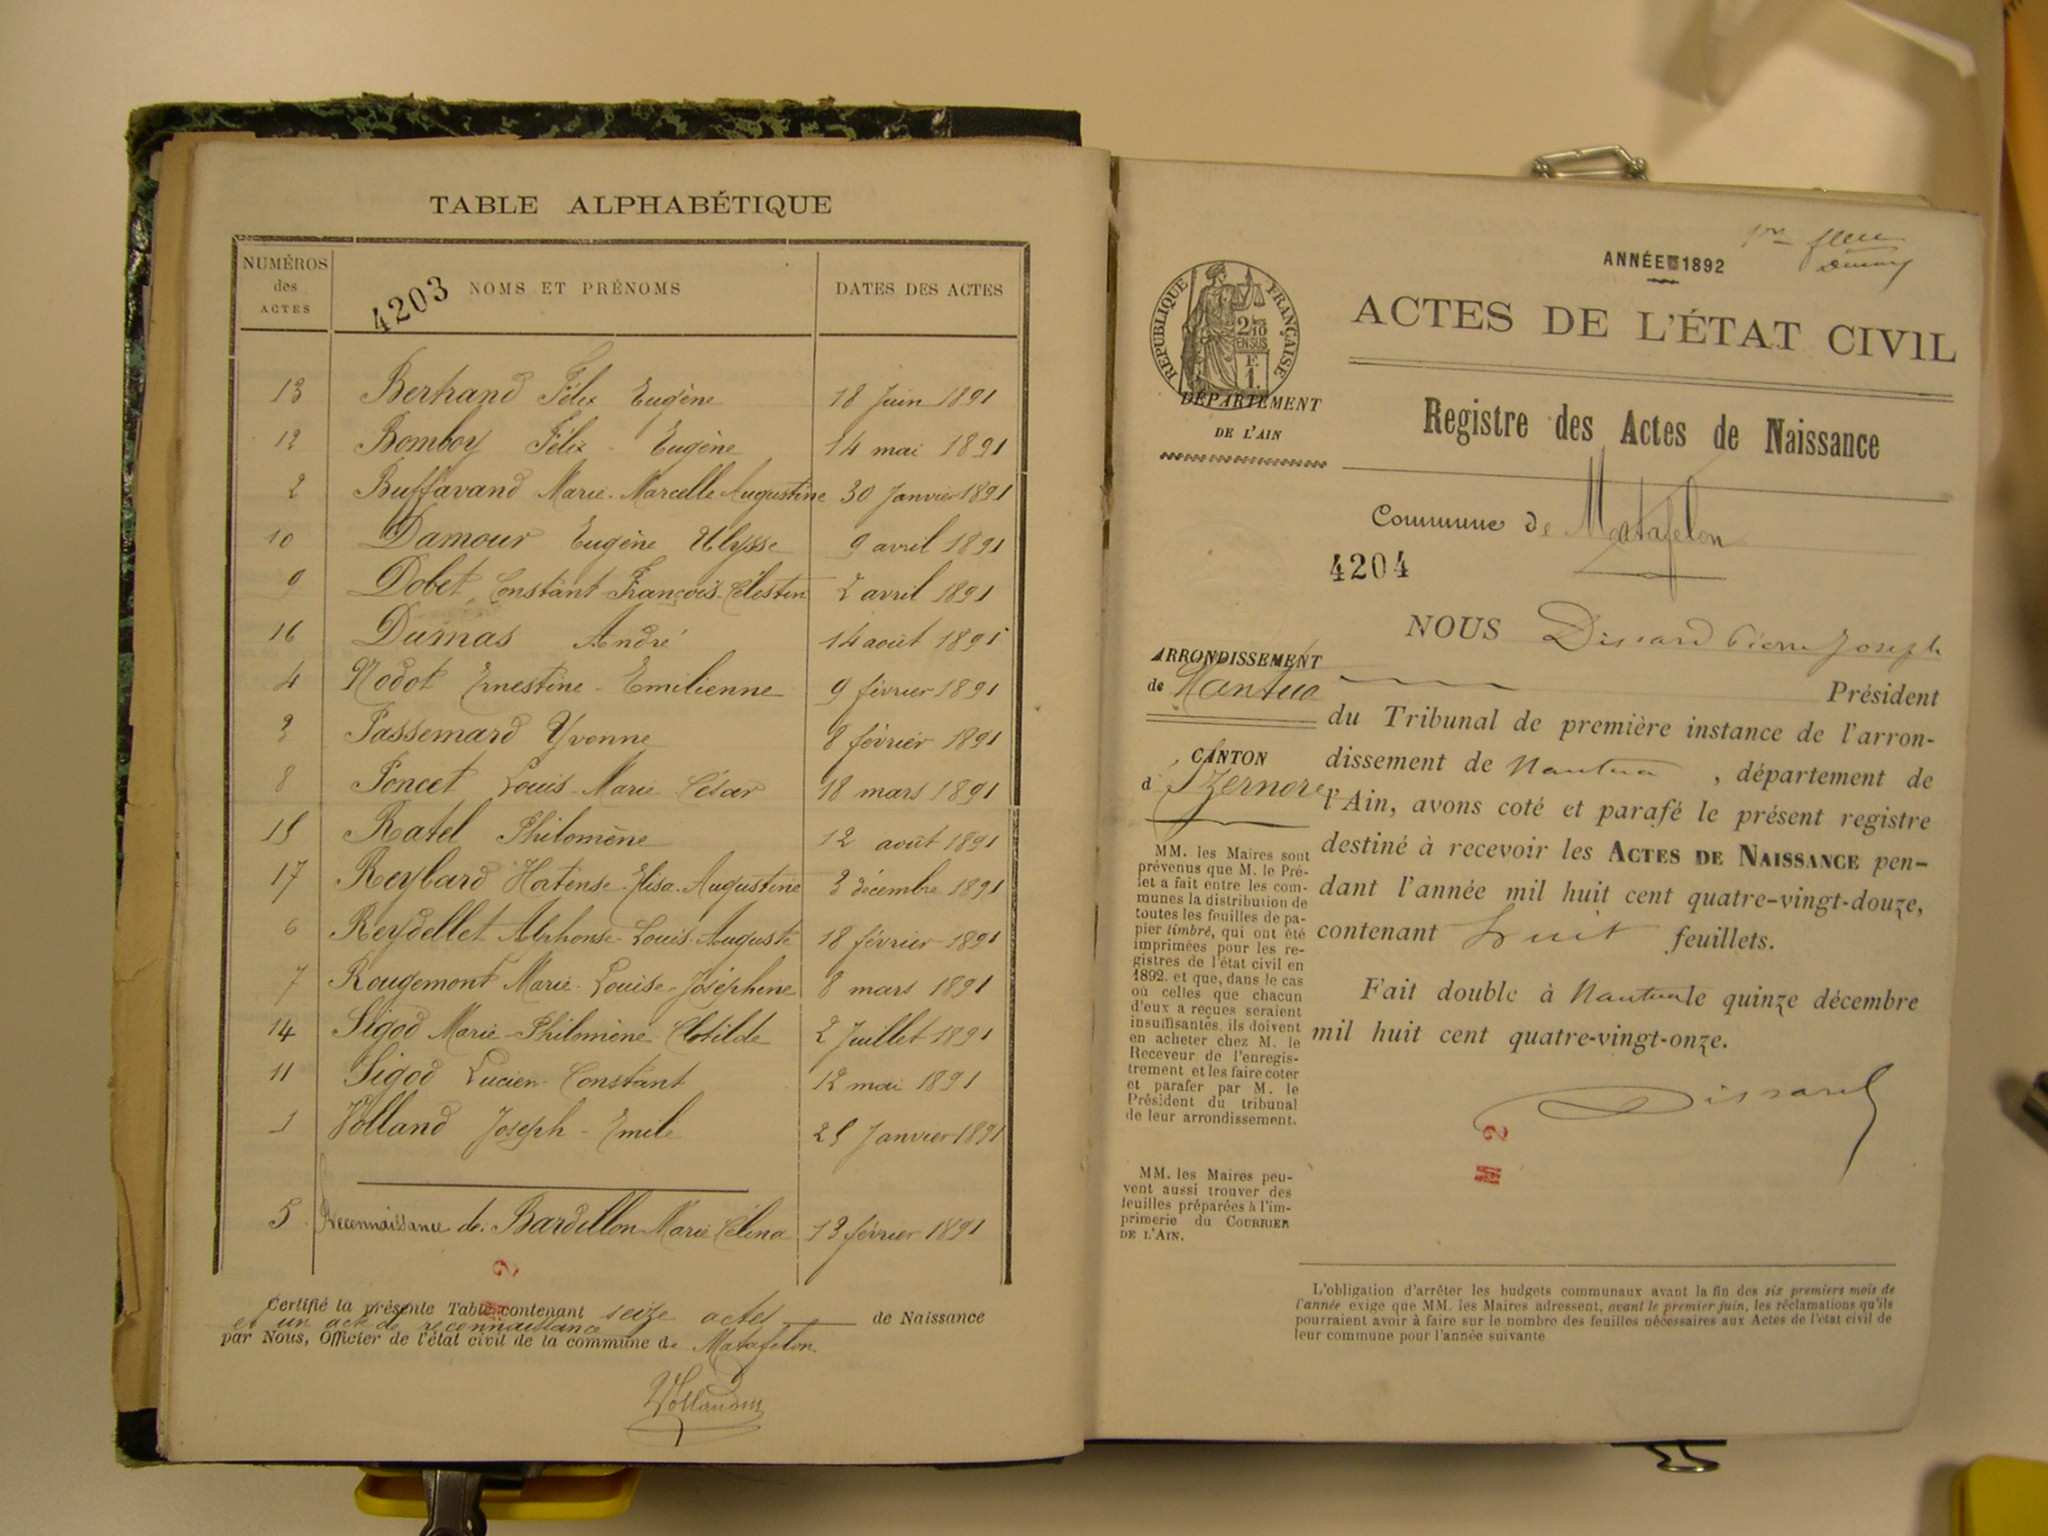 TABLE ALPHABÉTIQUE
NUMÉROS des ACTES
NOMS ET PRÉNOMS
DATES DES ACTES
4203
13 Bertrand Félix Eugène 18 Juin 1891
12 Bomboy Félix - Eugène 14 mai 1891
2 Buffavand Marie-Marcelle Augustine 30 Janvier 1891
10 Damour Eugène Ulysse 9 avril 1891
9 Dobet Constant-François-Célestin 2 avril 1891
16 Dumas André 14 août 1891
4 Nodot Ernestine-Emilienne 9 février 1891
3 Passemard Yvonne 8 février 1891
8 Poncet Louis-Marie César 18 mars 1891
15 Ratel Philomène 12 août 1891
17 Reybard Hortense-Elisa-Augustine 3 décembre 1891
6 Reydellet Alphonse-Louis-Auguste 18 février 1891
7 Rougemont Marie-Louise-Joséphine 8 mars 1891
14 Sigod Marie-Philomène Clotilde 2 Juillet 1891
11 Sigod Lucien-Constant 12 mai 1891
1 Volland Joseph-Emile 25 Janvier 1891
5 Reconnaissance de Bardillon Marie Célina 13 février 1891
Certifié la présente Table contenant seize actes de Naissance
et un acte de reconnaissance
par Nous, Officier de l'état civil de la commune de Matafelon.
ANNÉE 1892
RÉPUBLIQUE FRANÇAISE
2/10 EN SUS
F. 1.
ACTES DE L'ÉTAT CIVIL
DÉPARTEMENT
DE L'AIN
Registre des Actes de Naissance
Commune de Matafelon
4204
NOUS Dissard Pierre Joseph
Président
du Tribunal de première instance de l'arron-
dissement de Nantua, département de
l'Ain, avons coté et parafé le présent registre
destiné à recevoir les ACTES DE NAISSANCE pen-
dant l'année mil huit cent quatre-vingt-douze,
contenant huit feuillets.
Fait double à Nantua le quinze décembre
mil huit cent quatre-vingt-onze.
Dissard
ARRONDISSEMENT
de Nantua
CANTON
d'Izernore
MM. les Maires sont
prévenus que M. le Pré-
fet a fait entre les com-
munes la distribution de
toutes les feuilles de pa-
pier timbré, qui ont été
imprimées pour les re-
gistres de l'état civil en
1892, et que, dans le cas
où celles que chacun
d'eux a reçues seraient
insuffisantes, ils doivent
en acheter chez M. le
Receveur de l'enregis-
trement et les faire coter
et parafer par M. le
Président du tribunal
de leur arrondissement.
MM. les Maires peu-
vent aussi trouver des
feuilles préparées à l'im-
primerie du COURRIER
DE L'AIN.
L'obligation d'arrêter les budgets communaux avant la fin des six premiers mois de
l'année exige que MM. les Maires adressent, avant le premier juin, les réclamations qu'ils
pourraient avoir à faire sur le nombre des feuilles nécessaires aux Actes de l'état civil de
leur commune pour l'année suivante